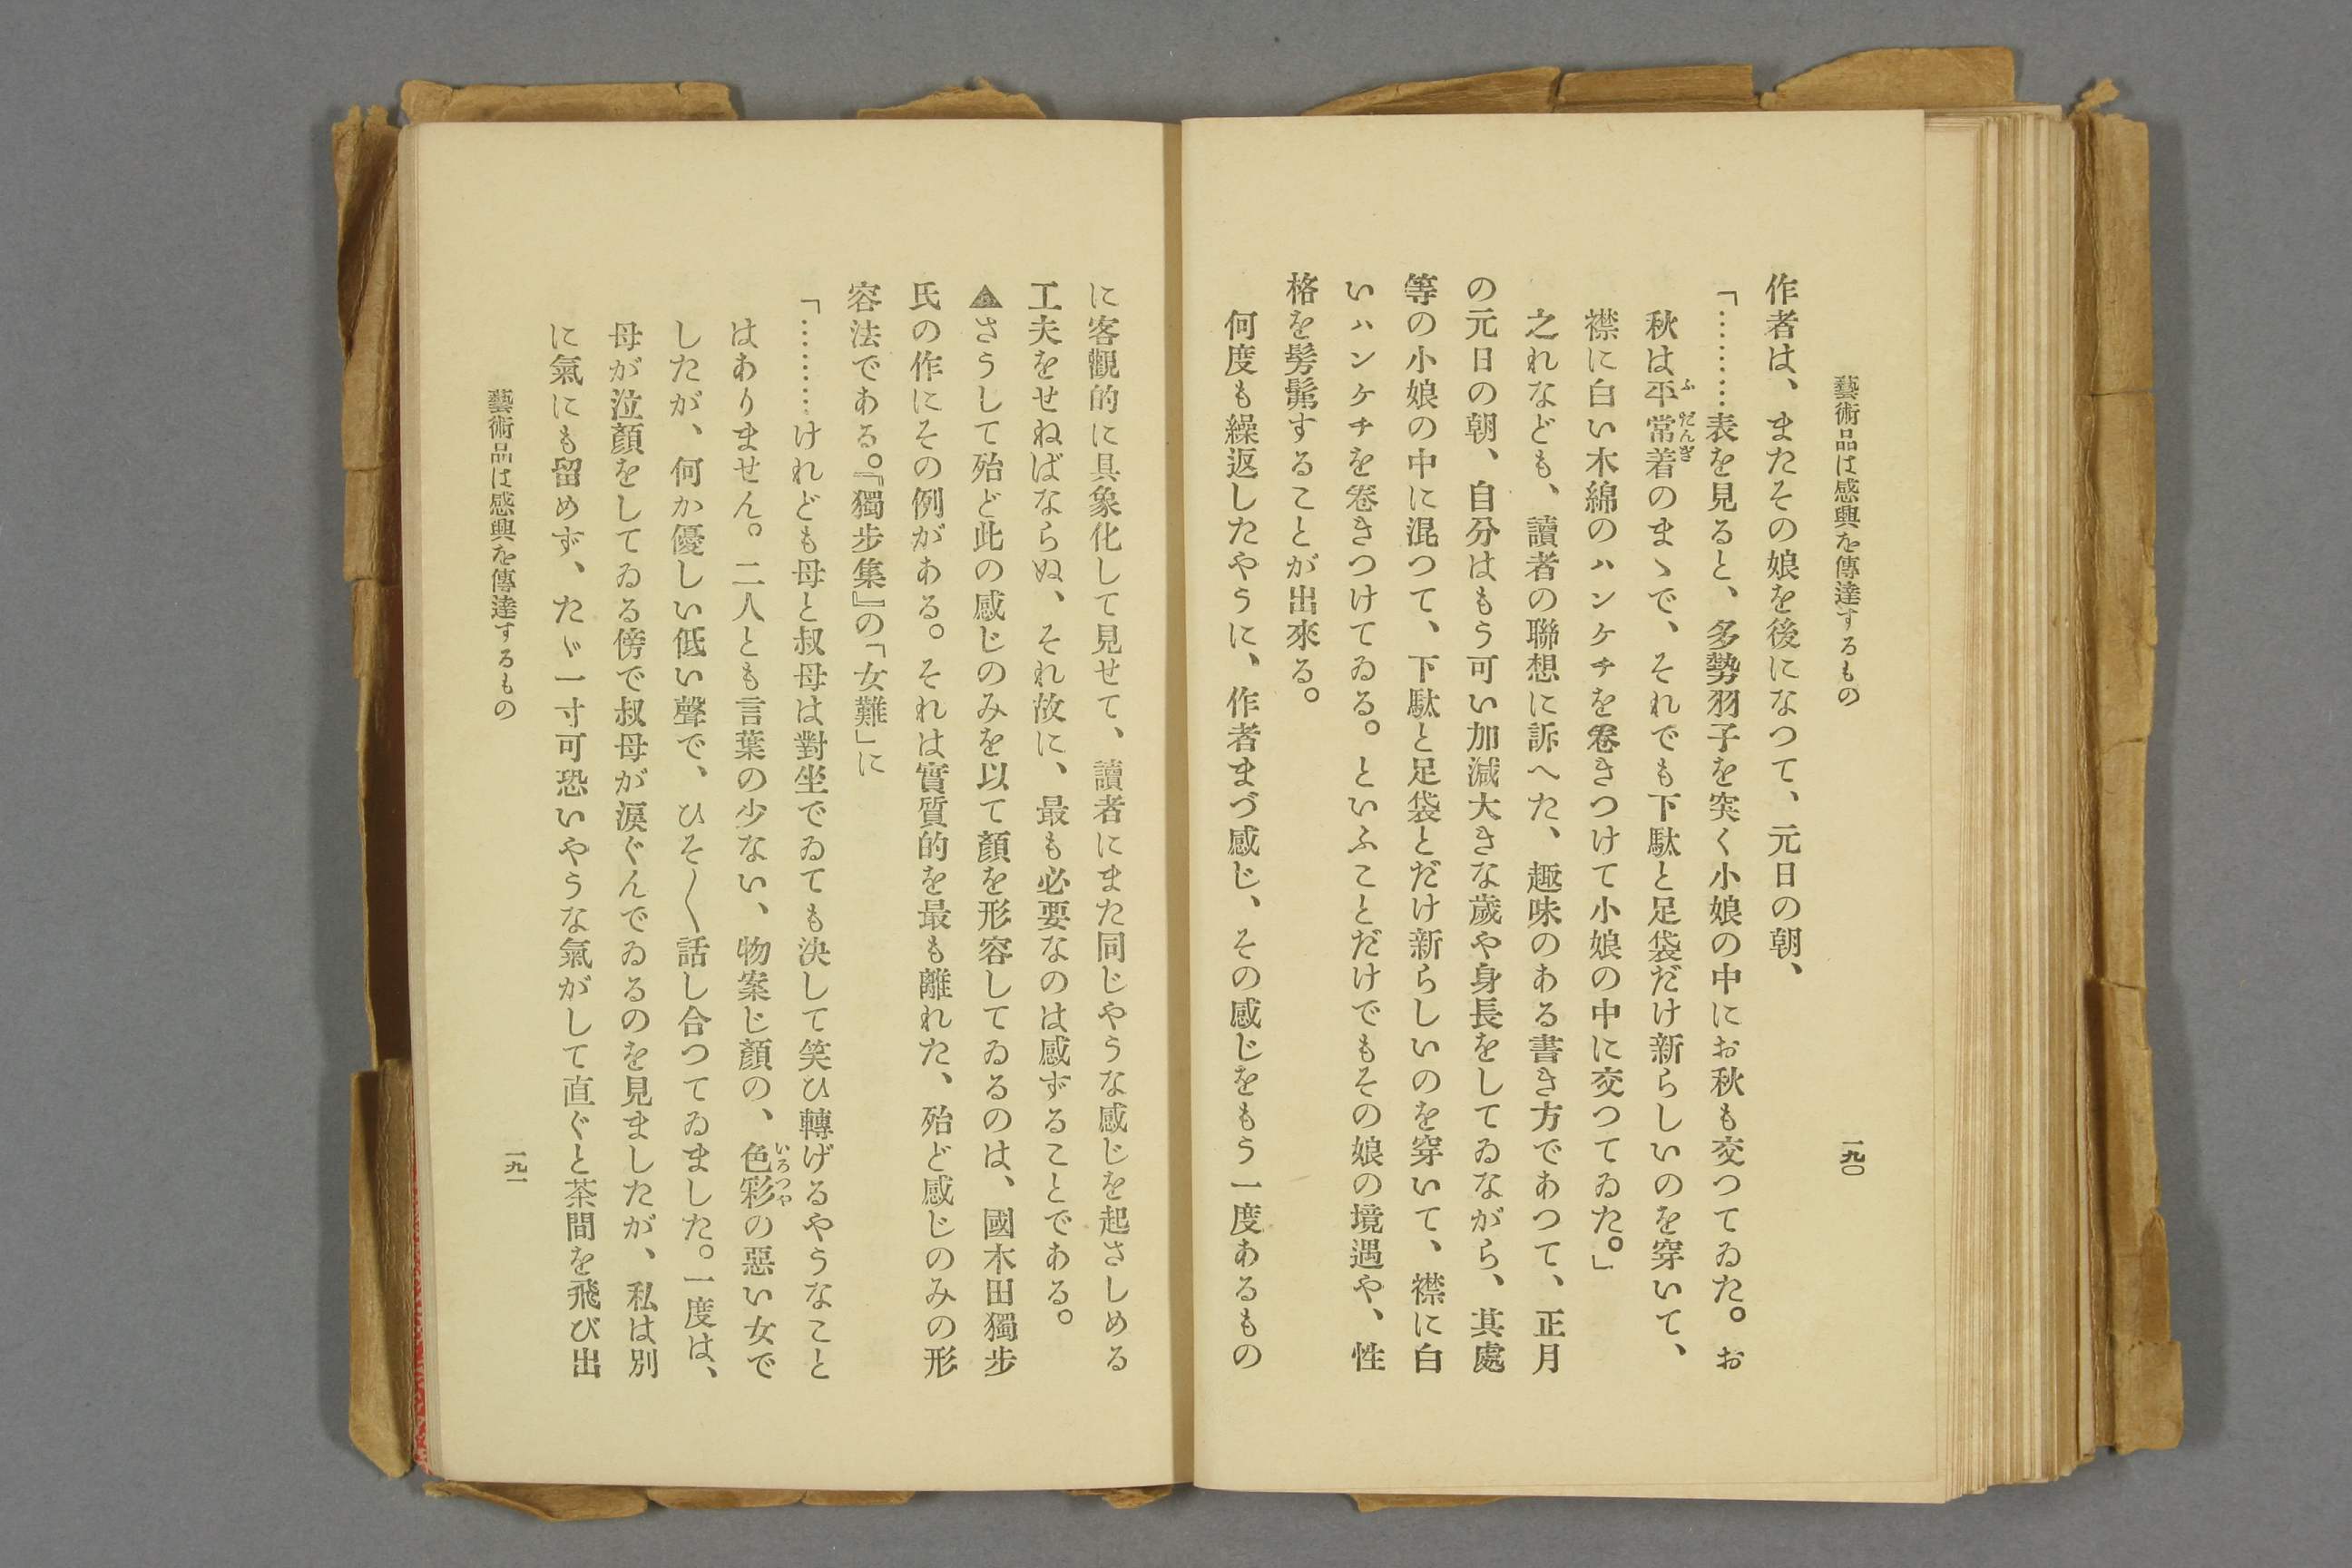 藝術品は感興を傳達するもの
一九〇
作者は、またその娘を後になつて、元日の朝、
「…………表を見ると、多勢羽子を突く小娘の中にお秋も交つてゐた。お
秋は平常着のまゝで、それでも下駄と足袋だけ新らしいのを穿いて、
襟に白い木綿のハンケチを卷きつけて小娘の中に交つてゐた。」
之れなども、讀者の聯想に訴へた、趣味のある書き方であつて、正月
の元日の朝、自分はもう可い加減大きな歲や身長をしてゐながら、其處
等の小娘の中に混つて、下駄と足袋とだけ新らしいのを穿いて、襟に白
いハンケチを卷きつけてゐる。といふことだけでもその娘の境遇や、性
格を髣髴することが出來る。
何度も繰返したやうに、作者まづ感じ、その感じをもう一度あるもの
に客觀的に具象化して見せて、讀者にまた同じやうな感じを起さしめる
工夫をせねばならぬ、それ故に、最も必要なのは感ずることである。
▲さうして殆ど此の感じのみを以て顏を形容してゐるのは、國木田獨步
氏の作にその例がある。それは實質的を最も離れた、殆ど感じのみの形
容法である。『獨步集』の「女難」に
「…………けれども母と叔母は對坐でゐても決して笑ひ轉げるやうなこと
はありません。二人とも言葉の少ない、物案じ顏の、色彩の惡い女で
したが、何か優しい低い聲で、ひそ〱話し合つてゐました。一度は、
母が泣顏をしてゐる傍で叔母が淚ぐんでゐるのを見ましたが、私は別
に氣にも留めず、たゞ一寸可恐いやうな氣がして直ぐと茶間を飛び出
藝術品は感興を傳達するもの
一九一